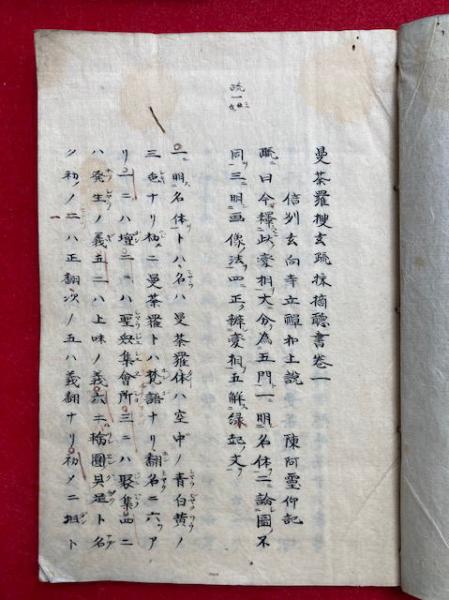 曼荼羅捜玄疏採摘聴書巻一
信州玄向寺立禪和上說 陳阿靈仰記
疏曰今釋此変相大分為五門一明名体二論圖不
同三明画像法四正辨変相五解縁起文
二明名体トハ名ハ曼荼羅体ハ空中ノ青白黄ノ
三色ナリ初ニ曼荼羅トハ梵語ナリ翻名ニ六ア
リ一ニハ壇二ニハ聖衆集會所三ニハ聚集四ニ
ハ発生ノ義五ニハ上味ノ義六ニ輪圓具足ト名
ク初ノ二ハ正翻次ノ五ハ義翻ナリ初メニ壇ト